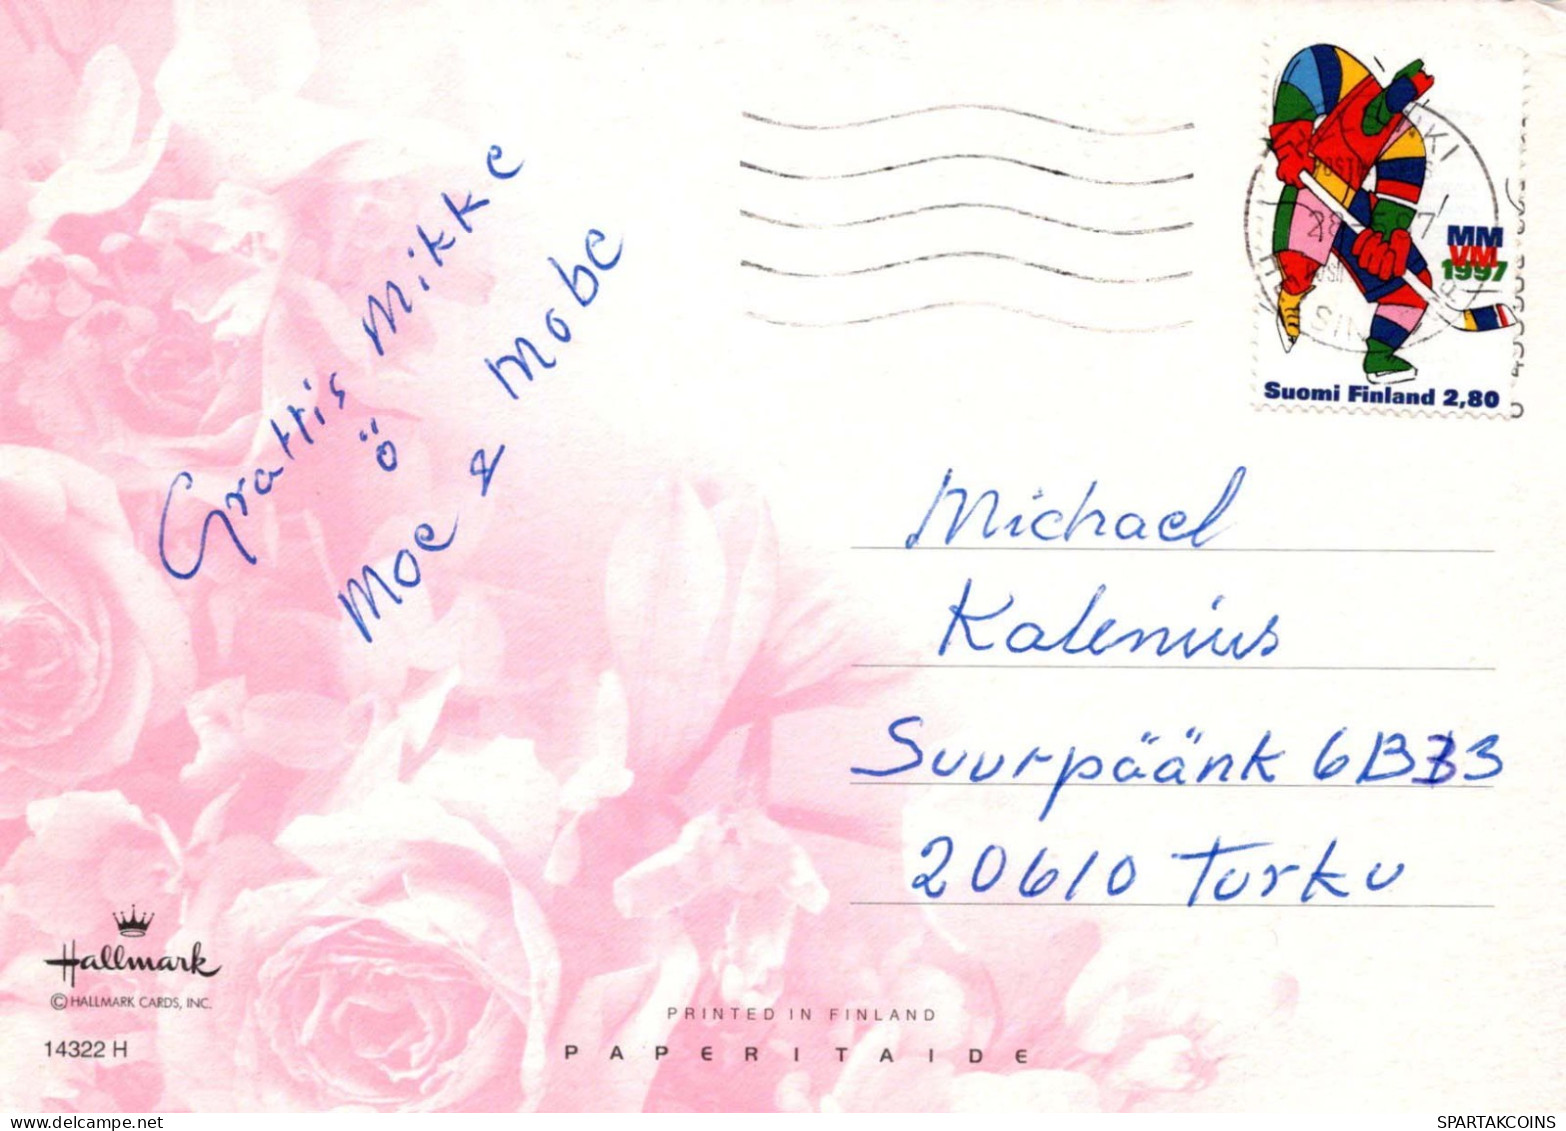 Grattis Mikke
ö
Moe & Mobe
MM
VM
1997
Suomi Finland 2,80
Michael
Kalenius
Suurpäänk 6B33
20610 Turku
Hallmark
© HALLMARK CARDS, INC.
14322 H
PRINTED IN FINLAND
PAPERITAIDE
SPARTAKCOINS